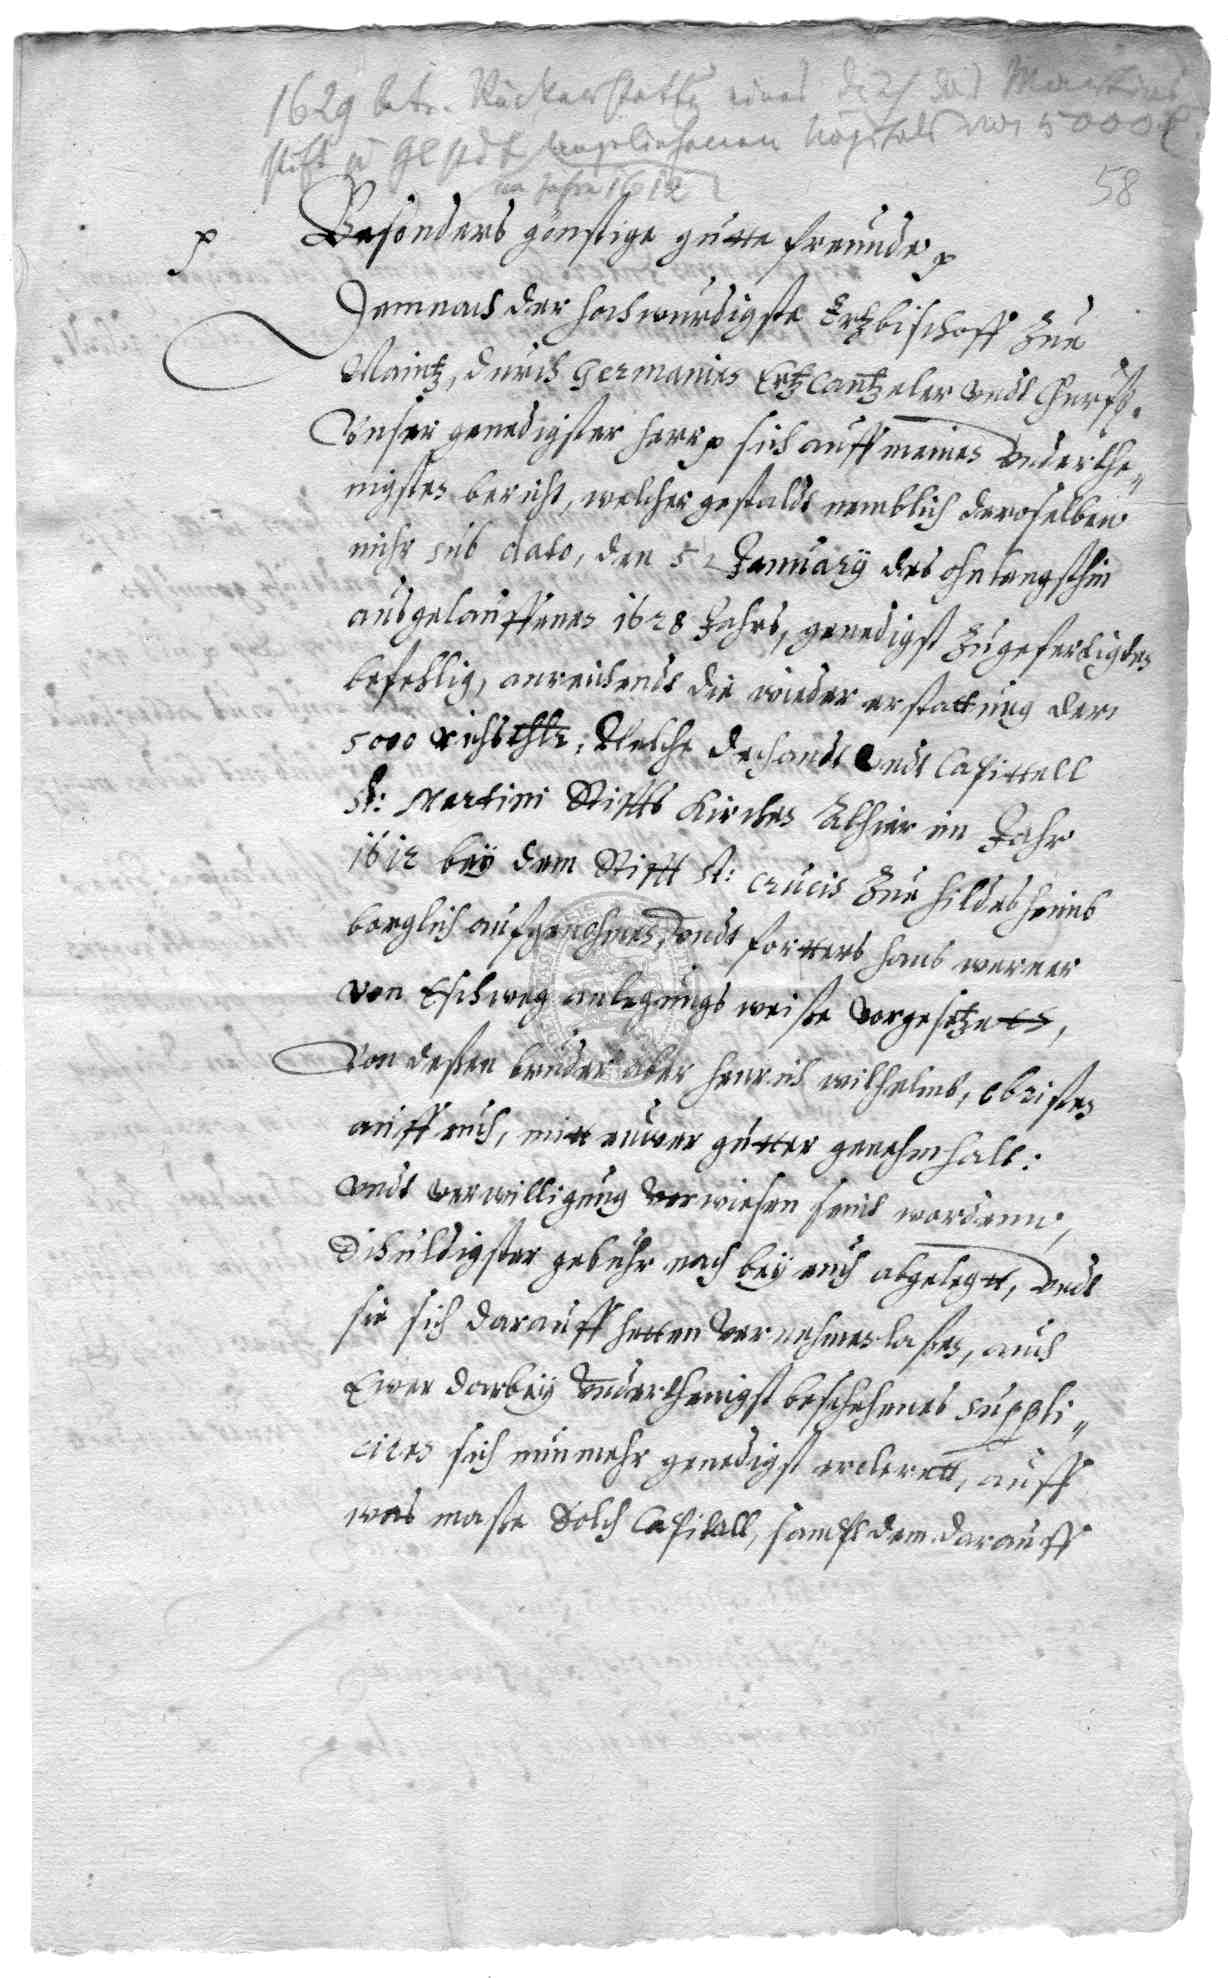 1629 betr. Rückerstattg eines durch das Martins
stift zu Hlgstdt angeliehenen Kapitals von 5000
im Jahre 1612
58
Besonders günstige gutte freunde p
Demnach der hochwürdigste Ertzbischoff Zue
Maintz, durch Germanien ErtzCantzeler vndt Churfst.
Vnser genedigster herr p sich auff meinen Vnderthe„
nigsten bericht, welcher gestaldt nemblich deroselben
mihr sub dato, den 5 Januarÿ des ohnlengsthin
ausgelauffenen 1628 Jahrs, genedigst Zugefertigten
befehlig, anreichendt die wieder erstattung der
5000 Richsthlr, Welche dechandt Vndt Capittell
St: Martini Stiffts Kirchen Alhier im Jahr
1612 beÿ dem Stifft St: Crucis Zue Hildesheimb
borglich aufgenohmen, Vndt fortters hans werner
von Eschweg anlegungs weiße Vorgesetzett,
Von deßen bruder aber henrich wilhelmb, Obristen
auff euch, mitt euwer gütter genehmhalt:
vndt verwilligung verwiesen seindt wordenn,
Schuldigster gebühr nach beÿ euch abgelegtt, Vndt
sie sich darauff hetten Vernehmen laßen, auch
Ewer darbeÿ Vnderthenigst beschehenes suppli„
ciren sich nunmehr genedigst erclerett, auff
was maße Solch Capitall, sampt dem darauff